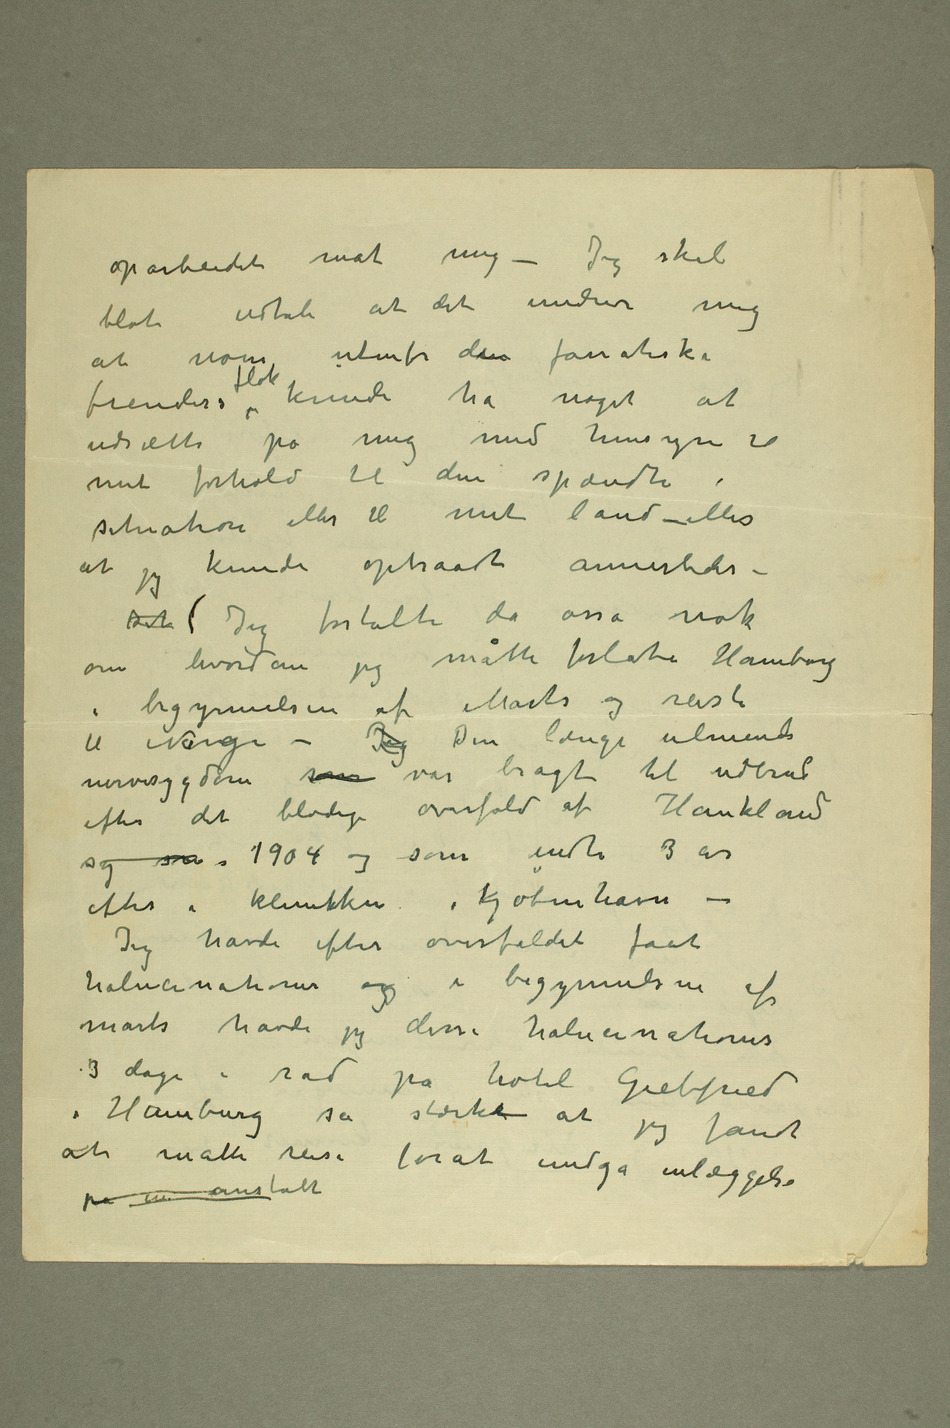 oparbeidet mot mig — Jeg skal
blot udtale at det undrer mig
at noen utenfor den fanatiske
fienders flok kunde ha noget at
udsætte på mig med hensyn til
mit forhold til den spændte
situation eller til mit land – eller
at jeg kunde optraadt annerledes –
Det ( Jeg fortalte da også nok
om hvordan jeg måtte forlate Hamborg
i begynnelsen af Marts og reiste
til Norge – Jeg Den længe ulmende
nervesygdom som var bragt til udbrud
efter det blodige overfald af Haukland
1904 og som endte 3 år
efter i klinikken i Kjøbenhavn —
Jeg havde efter overfaldet faat
halucinationer og i begynnelsen af
marts havde jeg disse halucinationer
3 dage i rad på hotel Giebfried
i Hamburg så stærke at jeg fandt
at måtte reise forat undgå inlæggelse
på en anstalt